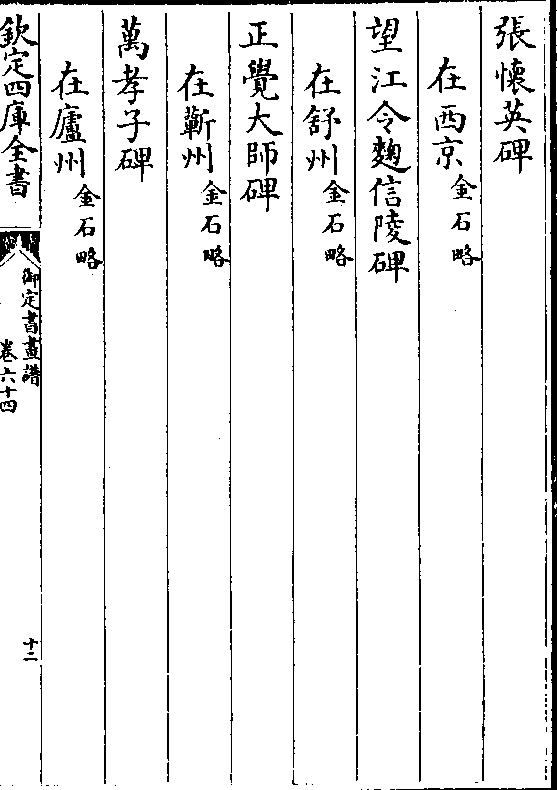 張懷英碑
在西京金石略
望江令麴信陵碑
在舒州金石略
正覺大師碑
在蘄州金石略
萬孝子碑
在廬州金石略
欽定四庫全書
御定書畫譜
卷六十四
十二